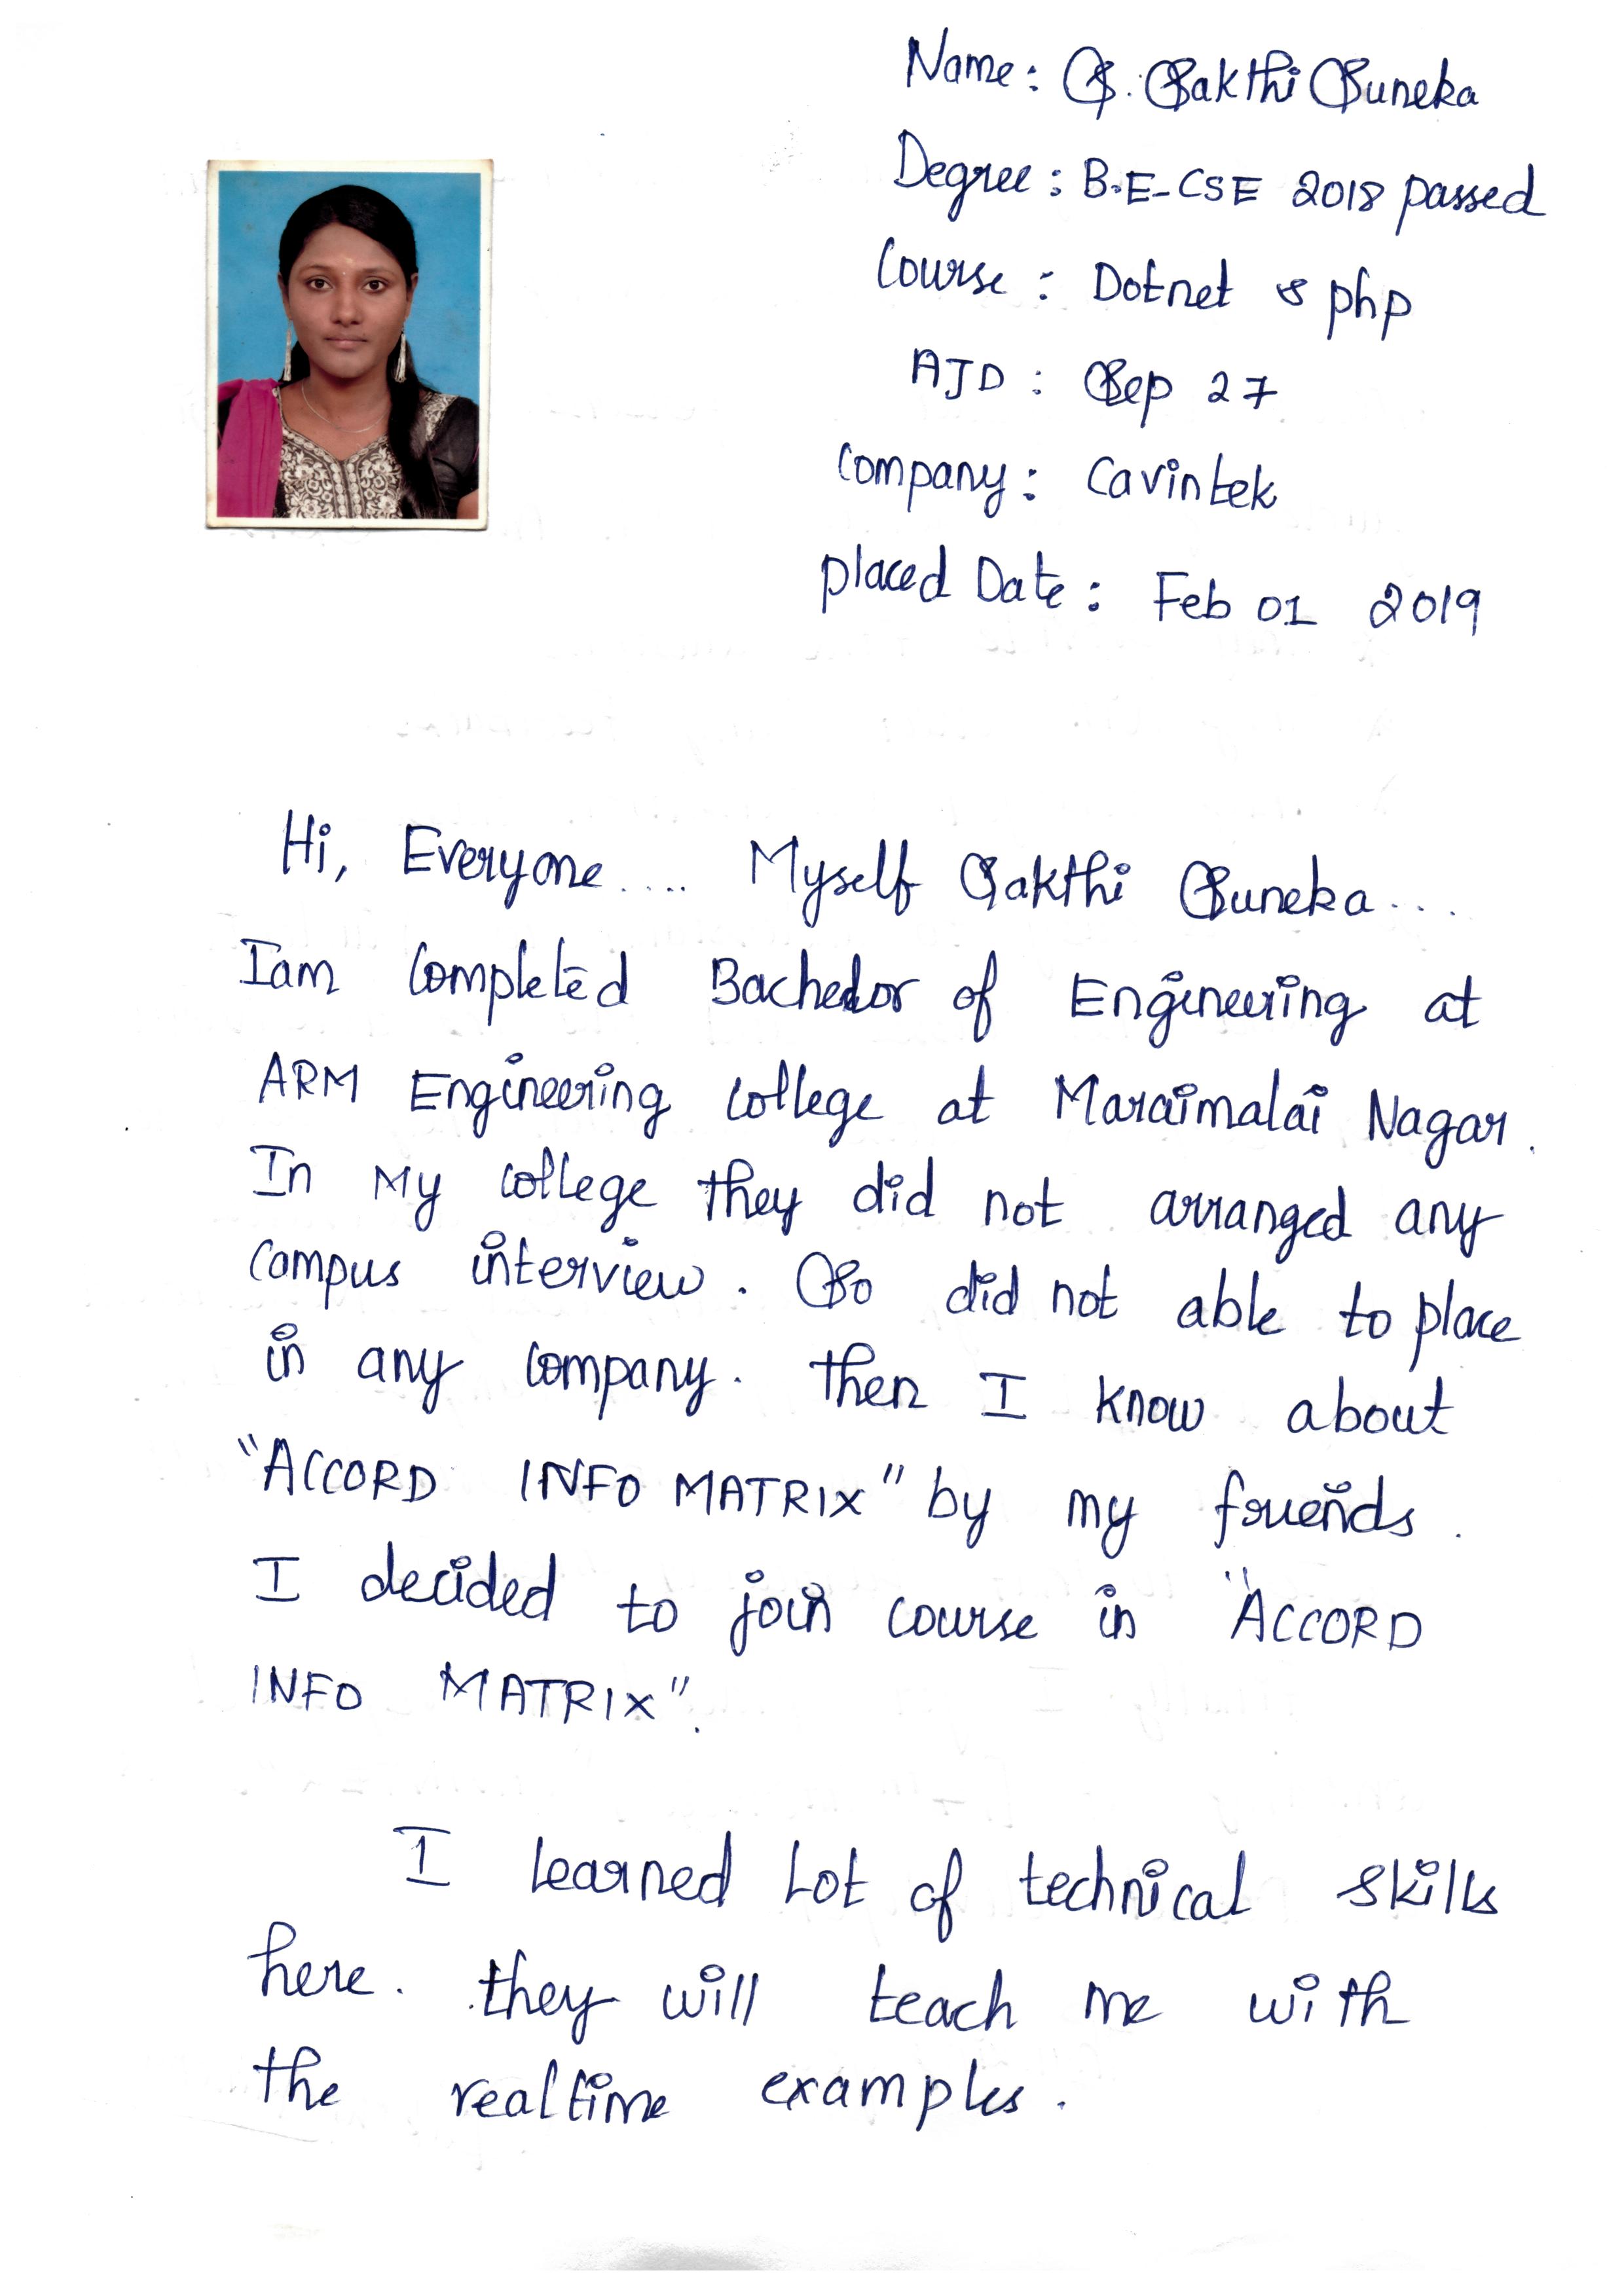 Name: S. Sakthi Suneka
Degree: B.E-CSE 2018 passed
Course: Dotnet & php
AJD: Sep 27
Company: Cavintek
placed Date: Feb 01 2019
Hi, Everyone.... Myself Sakthi Suneka...
Iam Completed Bachedor of Engineering at
ARM Engineering College at Maraimalai Nagar.
In My College they did not arranged any
Campus interview. So did not able to place
in any Company. Then I know about
"ACCORD INFO MATRIX" by my friends.
I decided to join course in "ACCORD
INFO MATRIX".
I learned Lot of technical skills
here. they will teach me with
the realtime examples.